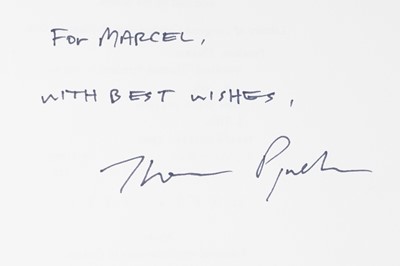 For MARCEL,
WITH BEST WISHES,
Thomas Pynchon